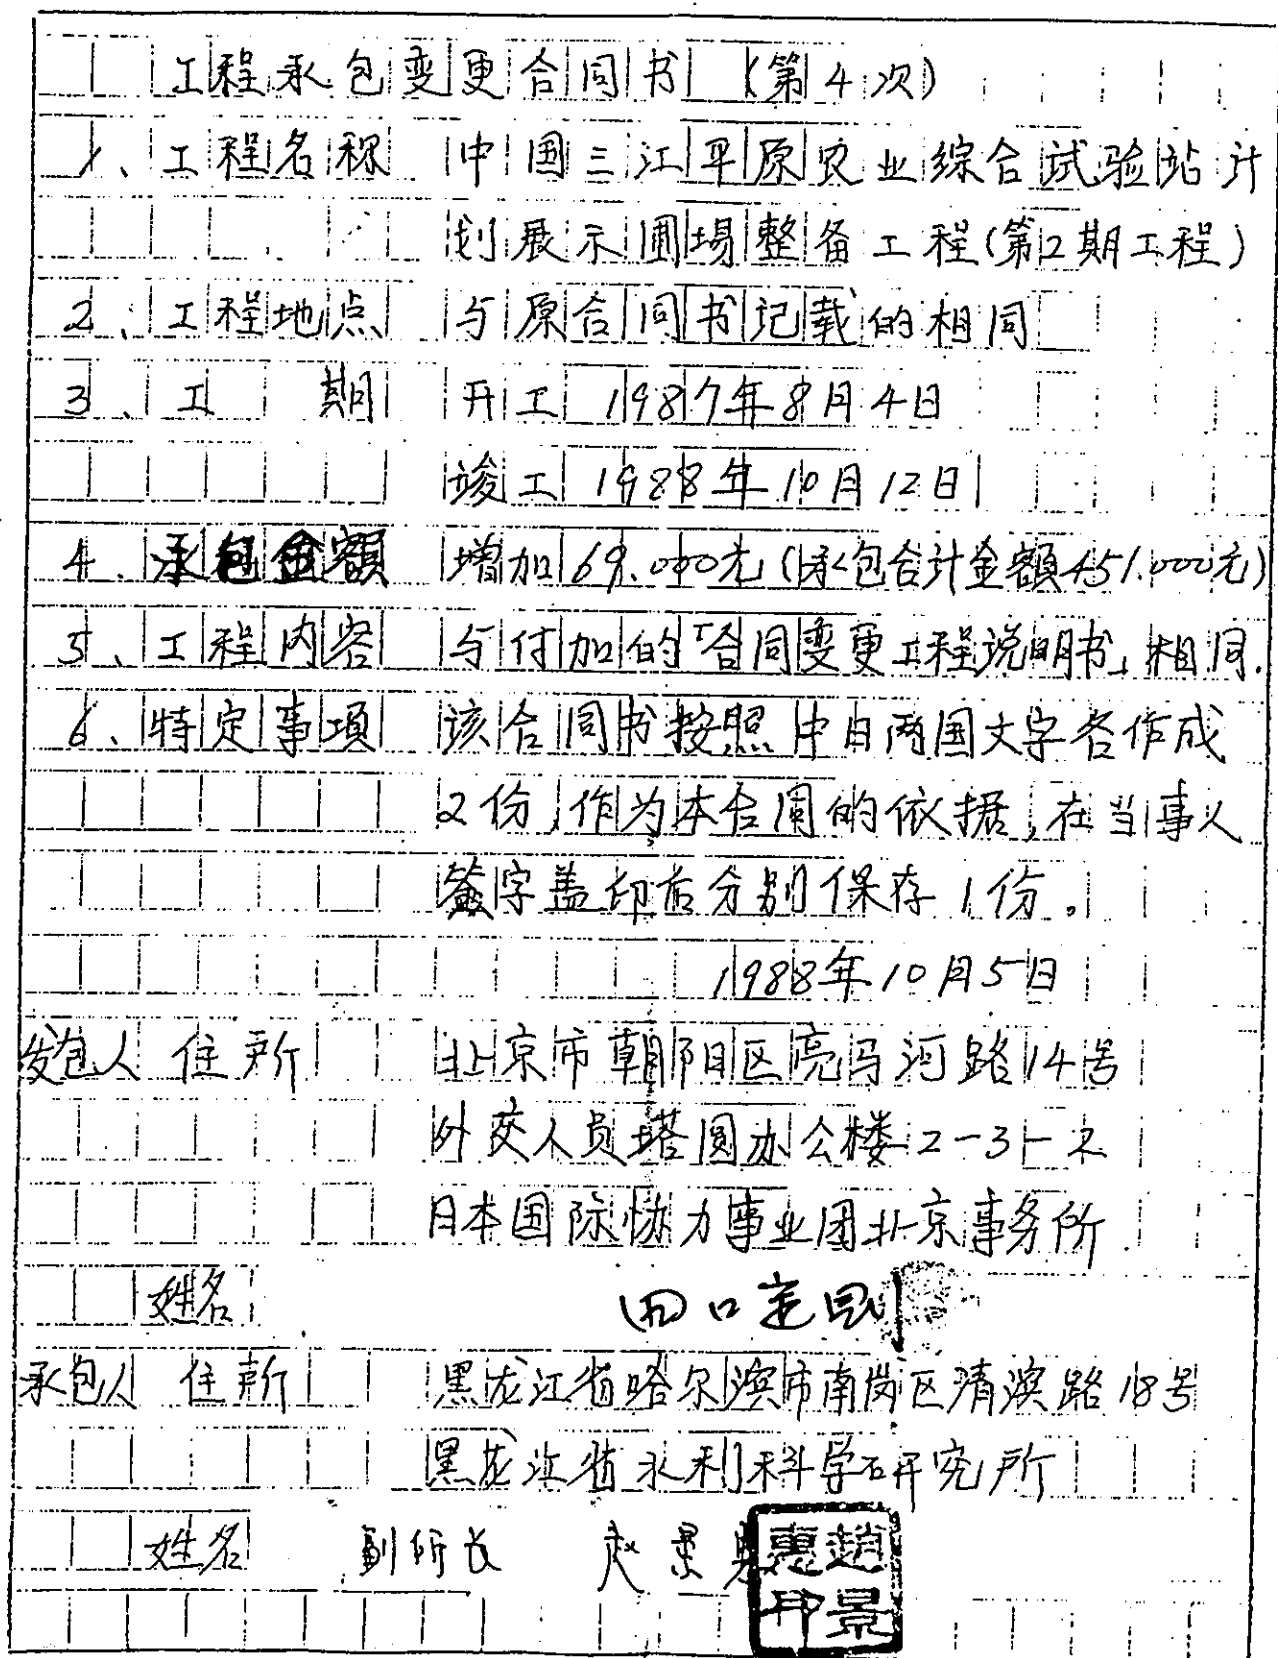 工程承包变更合同书 (第4次)
1、工程名称 中国三江平原农业综合试验站计
划展示圃場整备工程(第2期工程)
2、工程地点 与原合同书记载的相同
3、工 期 开工 1987年8月4日
竣工 1988年10月12日
4、承包金額 增加69.000元(承包合计金額451.000元)
5、工程内容 与付加的「合同変更工程说明书」相同.
6、特定事項 该合同书按照中日両国文字各作成
2份,作为本合同的依据,在当事人
签字盖印后分别保存1份。
1988年10月5日
发包人 住所 北京市朝阳区亮马河路14号
外交人员塔圆办公楼2-3-2
日本国际协力事业团北京事务所
姓名 田口定則
承包人 住所 黑龙江省哈尔滨市南岗区清滨路18号
黑龙江省水利科学研究所
姓名 副所长 赵景惠
趙景惠印